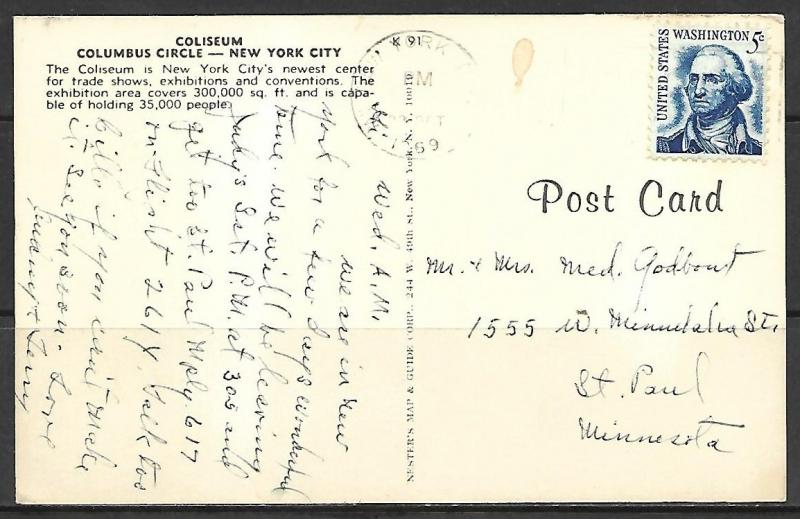 COLISEUM
COLUMBUS CIRCLE — NEW YORK CITY
The Coliseum is New York City's newest center
for trade shows, exhibitions and conventions. The
exhibition area covers 300,000 sq. ft. and is capa-
ble of holding 35,000 people.
K 91
YORK
PM
OCT
1969
UNITED STATES
WASHINGTON 5c
Wed. A.M.
Hi,
We are in New
York for a few days wonderful
time. We will be leaving
Sat. P.M. at 305 and
get to St. Paul Mpls. 617
on Flight 261X. Talk to
Billo if you can't make
it. See you soon. Love
Terry
NESTER'S MAP & GUIDE CORP., 244 W. 49th St., New York, N. Y. 10019
Post Card
Mr. & Mrs. Med. Godbout
1555 W. Minnehaha St.
St. Paul
Minnesota